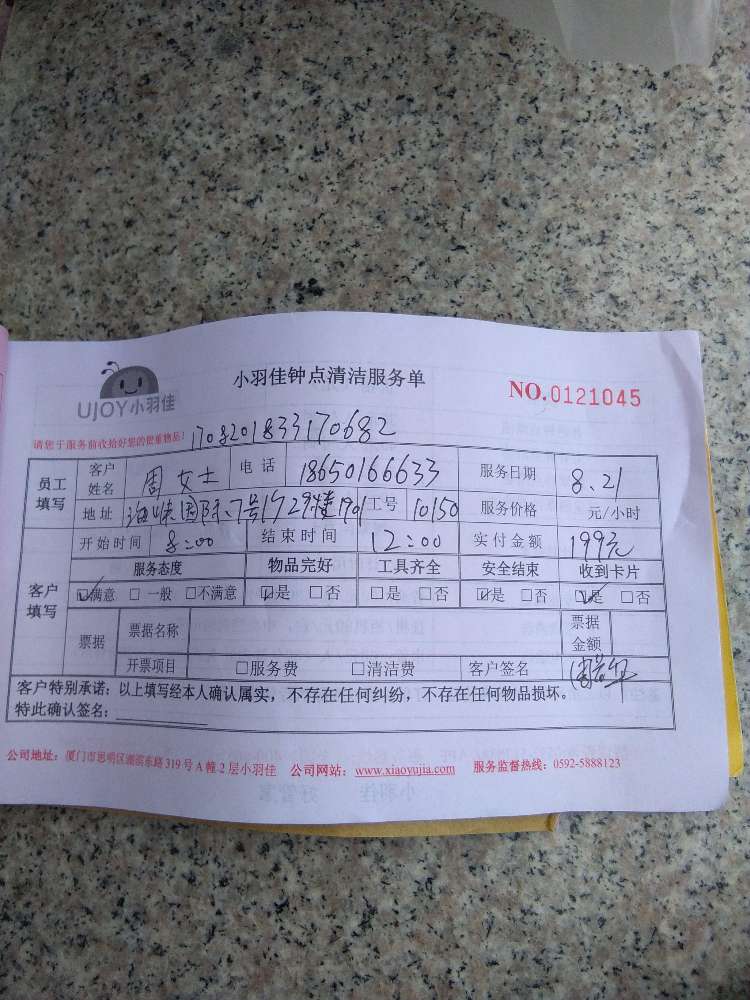 小羽佳钟点清洁服务单
NO.0121045
UJOY小羽佳
请您于服务前收拾好您的贵重物品! 1708201833170682
员工填写 客户姓名 周女士 电话 18650166633 服务日期 8.21
地址 海峡国际 7号1729楼1901 工号 10150 服务价格 元/小时
客户填写 开始时间 8:00 结束时间 12:00 实付金额 199元
服务态度 物品完好 工具齐全 安全结束 收到卡片
☑满意 □一般 □不满意 ☑是 □否 □是 □否 ☑是 □否 ☑是 □否
票据 票据名称 票据金额
开票项目 □服务费 □清洁费 客户签名
客户特别承诺：以上填写经本人确认属实，不存在任何纠纷，不存在任何物品损坏。
特此确认签名：
公司地址：厦门市思明区湖滨东路319号A幢2层小羽佳 公司网站：www.xiaoyujia.com 服务监督热线：0592-5888123